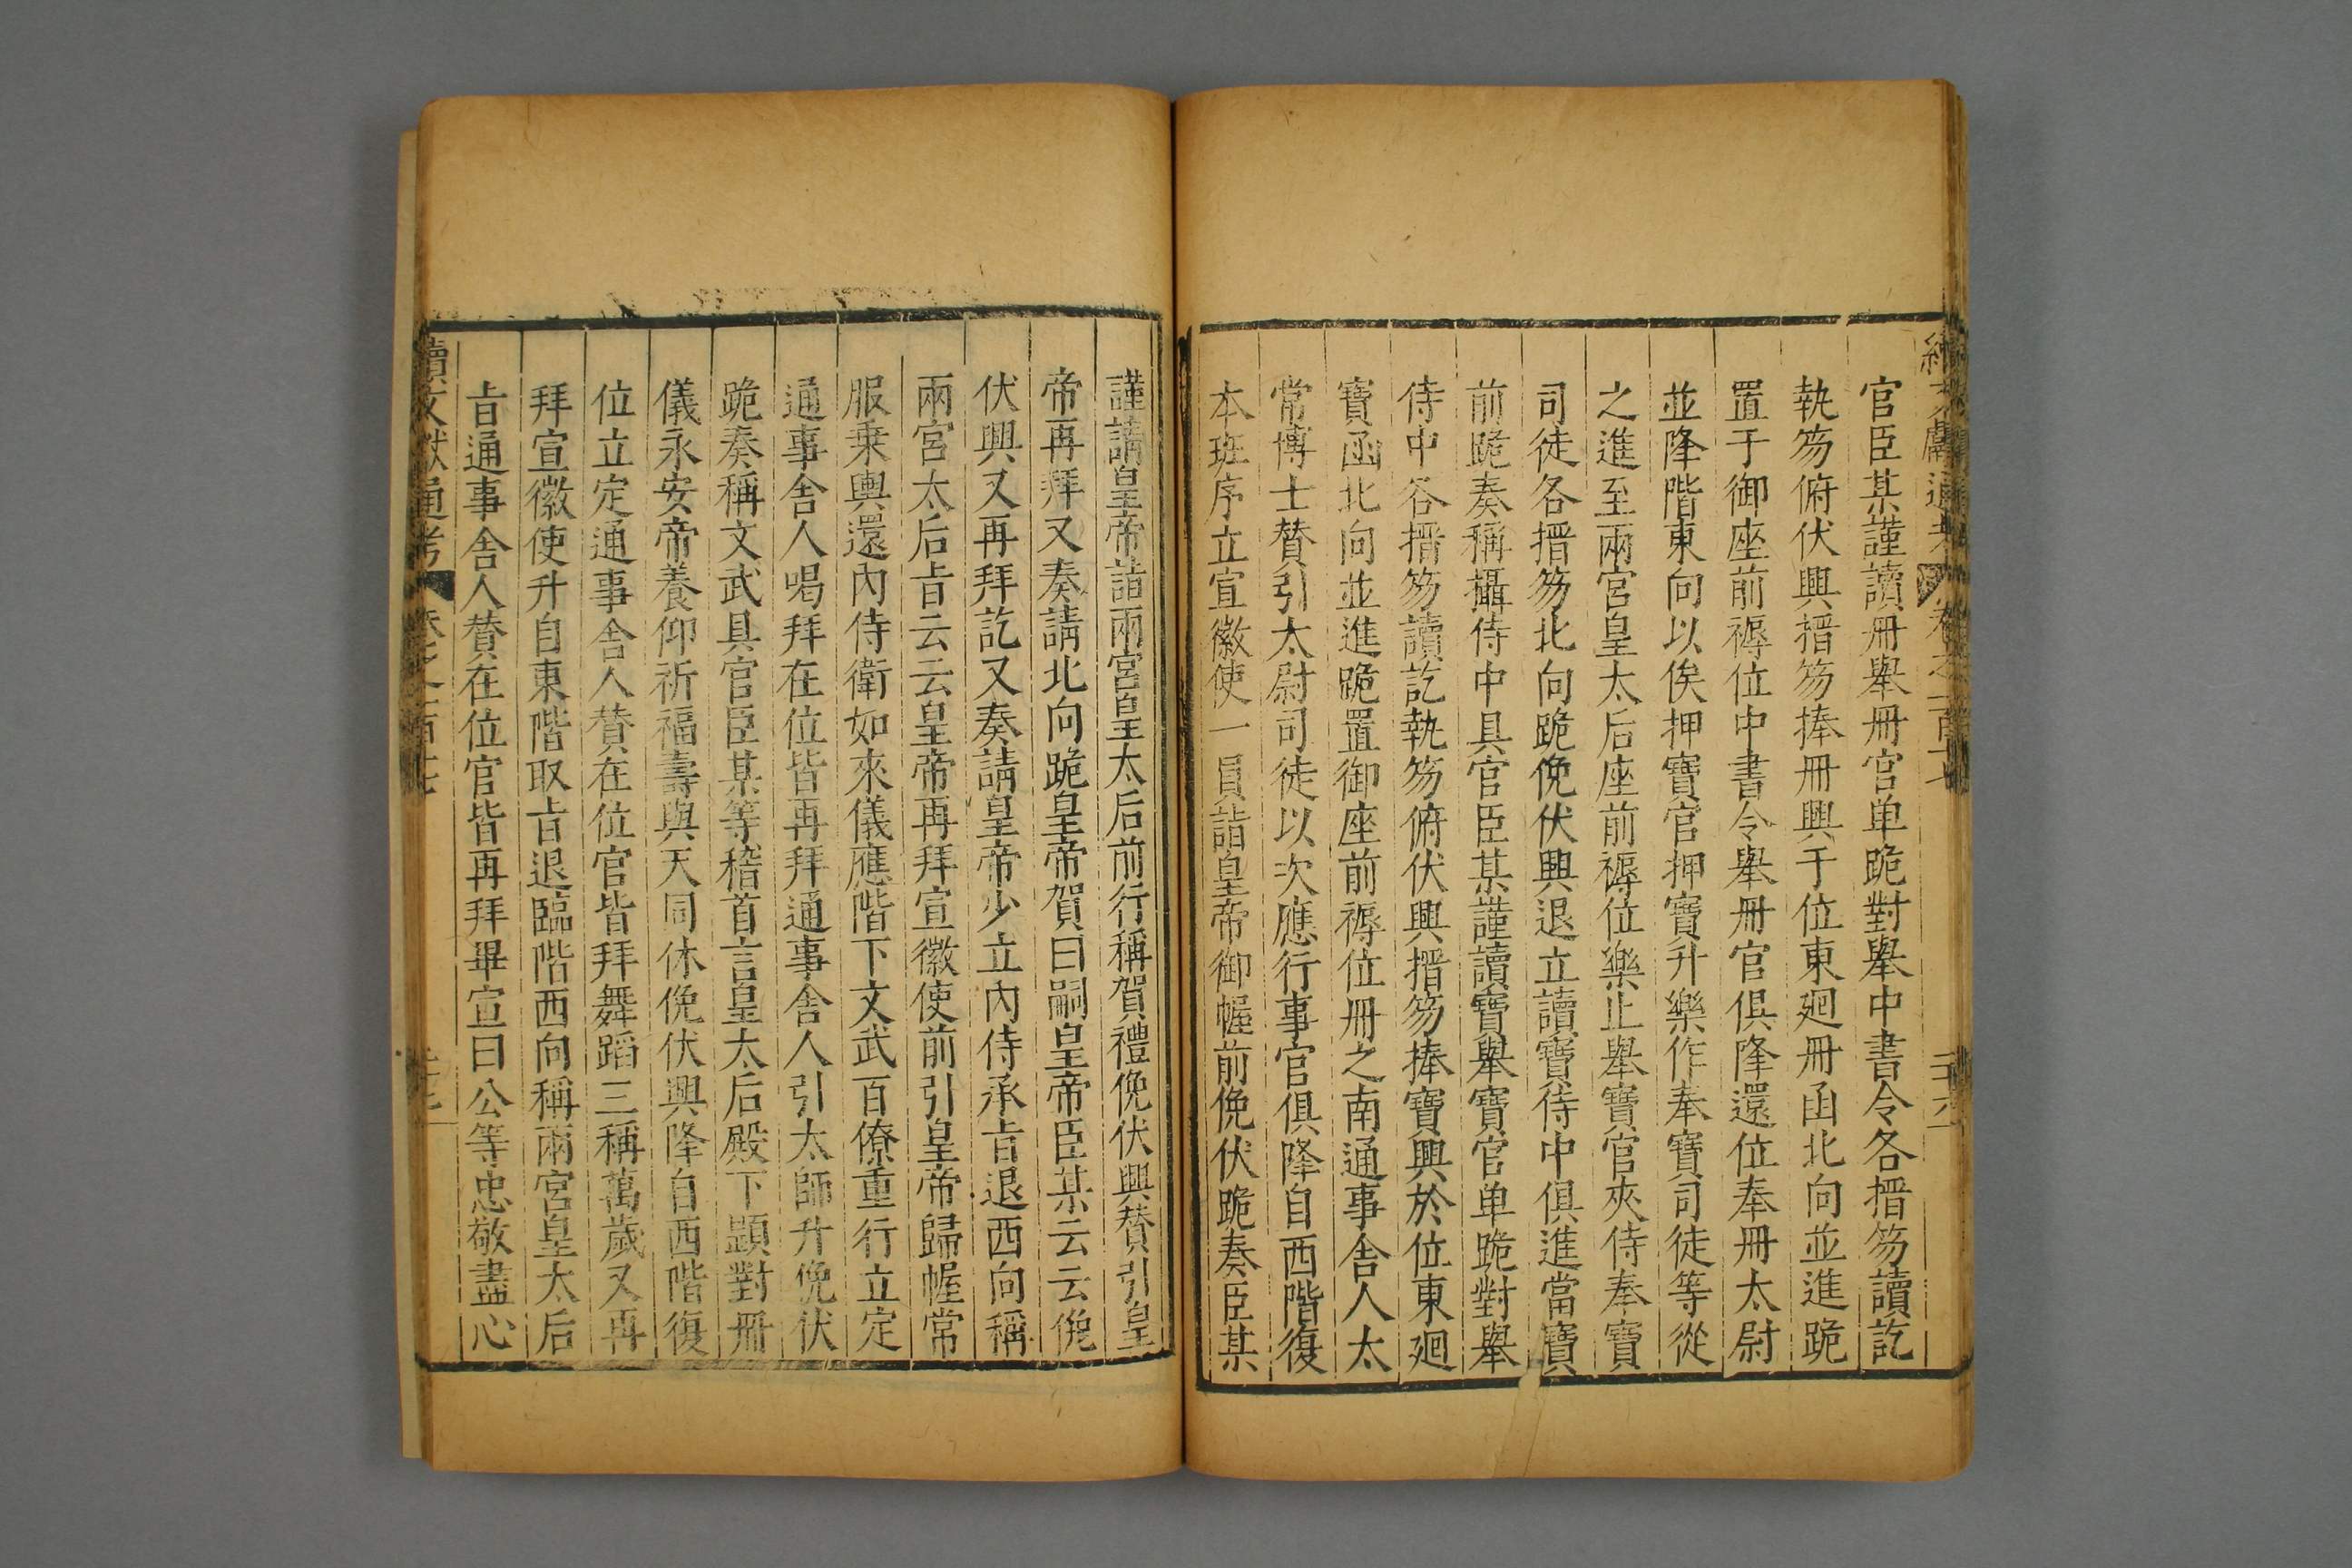 官臣某謹讀冊舉冊官单跪對舉中書令各搢笏讀訖
執笏俯伏興搢笏捧冊興于位東廻冊函北向並進跪
置于御座前褥位中書令舉冊官俱降還位奉冊太尉
並降階東向以俟押寶官押寶升樂作奉寶司徒等從
之進至兩宮皇太后座前褥位樂止舉寶官夾侍奉寶
司徒各搢笏北向跪俛伏興退立讀寶侍中俱進當寶
前跪奏稱攝侍中具官臣某謹讀寶舉寶官单跪對舉
侍中各搢笏讀訖執笏俯伏興搢笏捧寶興於位東廻
寶函北向並進跪置御座前褥位冊之南通事舍人太
常博士賛引太尉司徒以次應行事官俱降自西階復
本班序立宣徽使一員詣皇帝御幄前俛伏跪奏臣某
謹請皇帝詣兩宮皇太后前行稱賀禮俛伏興賛引皇
帝再拜又奏請北向跪皇帝賀曰嗣皇帝臣某云云俛
伏興又再拜訖又奏請皇帝少立內侍承㫖退西向稱
兩宮太后㫖云云皇帝再拜宣徽使前引皇帝歸幄常
服乗輿還內侍衛如來儀應階下文武百僚重行立定
通事舍人喝拜在位皆再拜通事舍人引太師升俛伏
跪奏稱文武具官臣某等稽首言皇太后殿下顯對冊
儀永安帝養仰祈福壽與天同休俛伏興降自西階復
位立定通事舍人賛在位官皆拜舞蹈三稱萬歲又再
拜宣徽使升自東階取㫖退臨階西向稱兩宮皇太后
㫖通事舍人賛在位官皆再拜畢宣曰公等忠敬盡心
續文獻通考